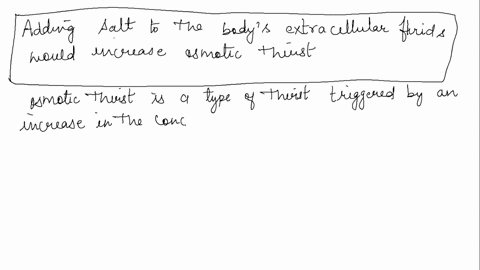 Adding salt to the body's extracellular fluids
would increase osmotic thirst
osmotic thirst is a type of thirst triggered by an
increase in the conc